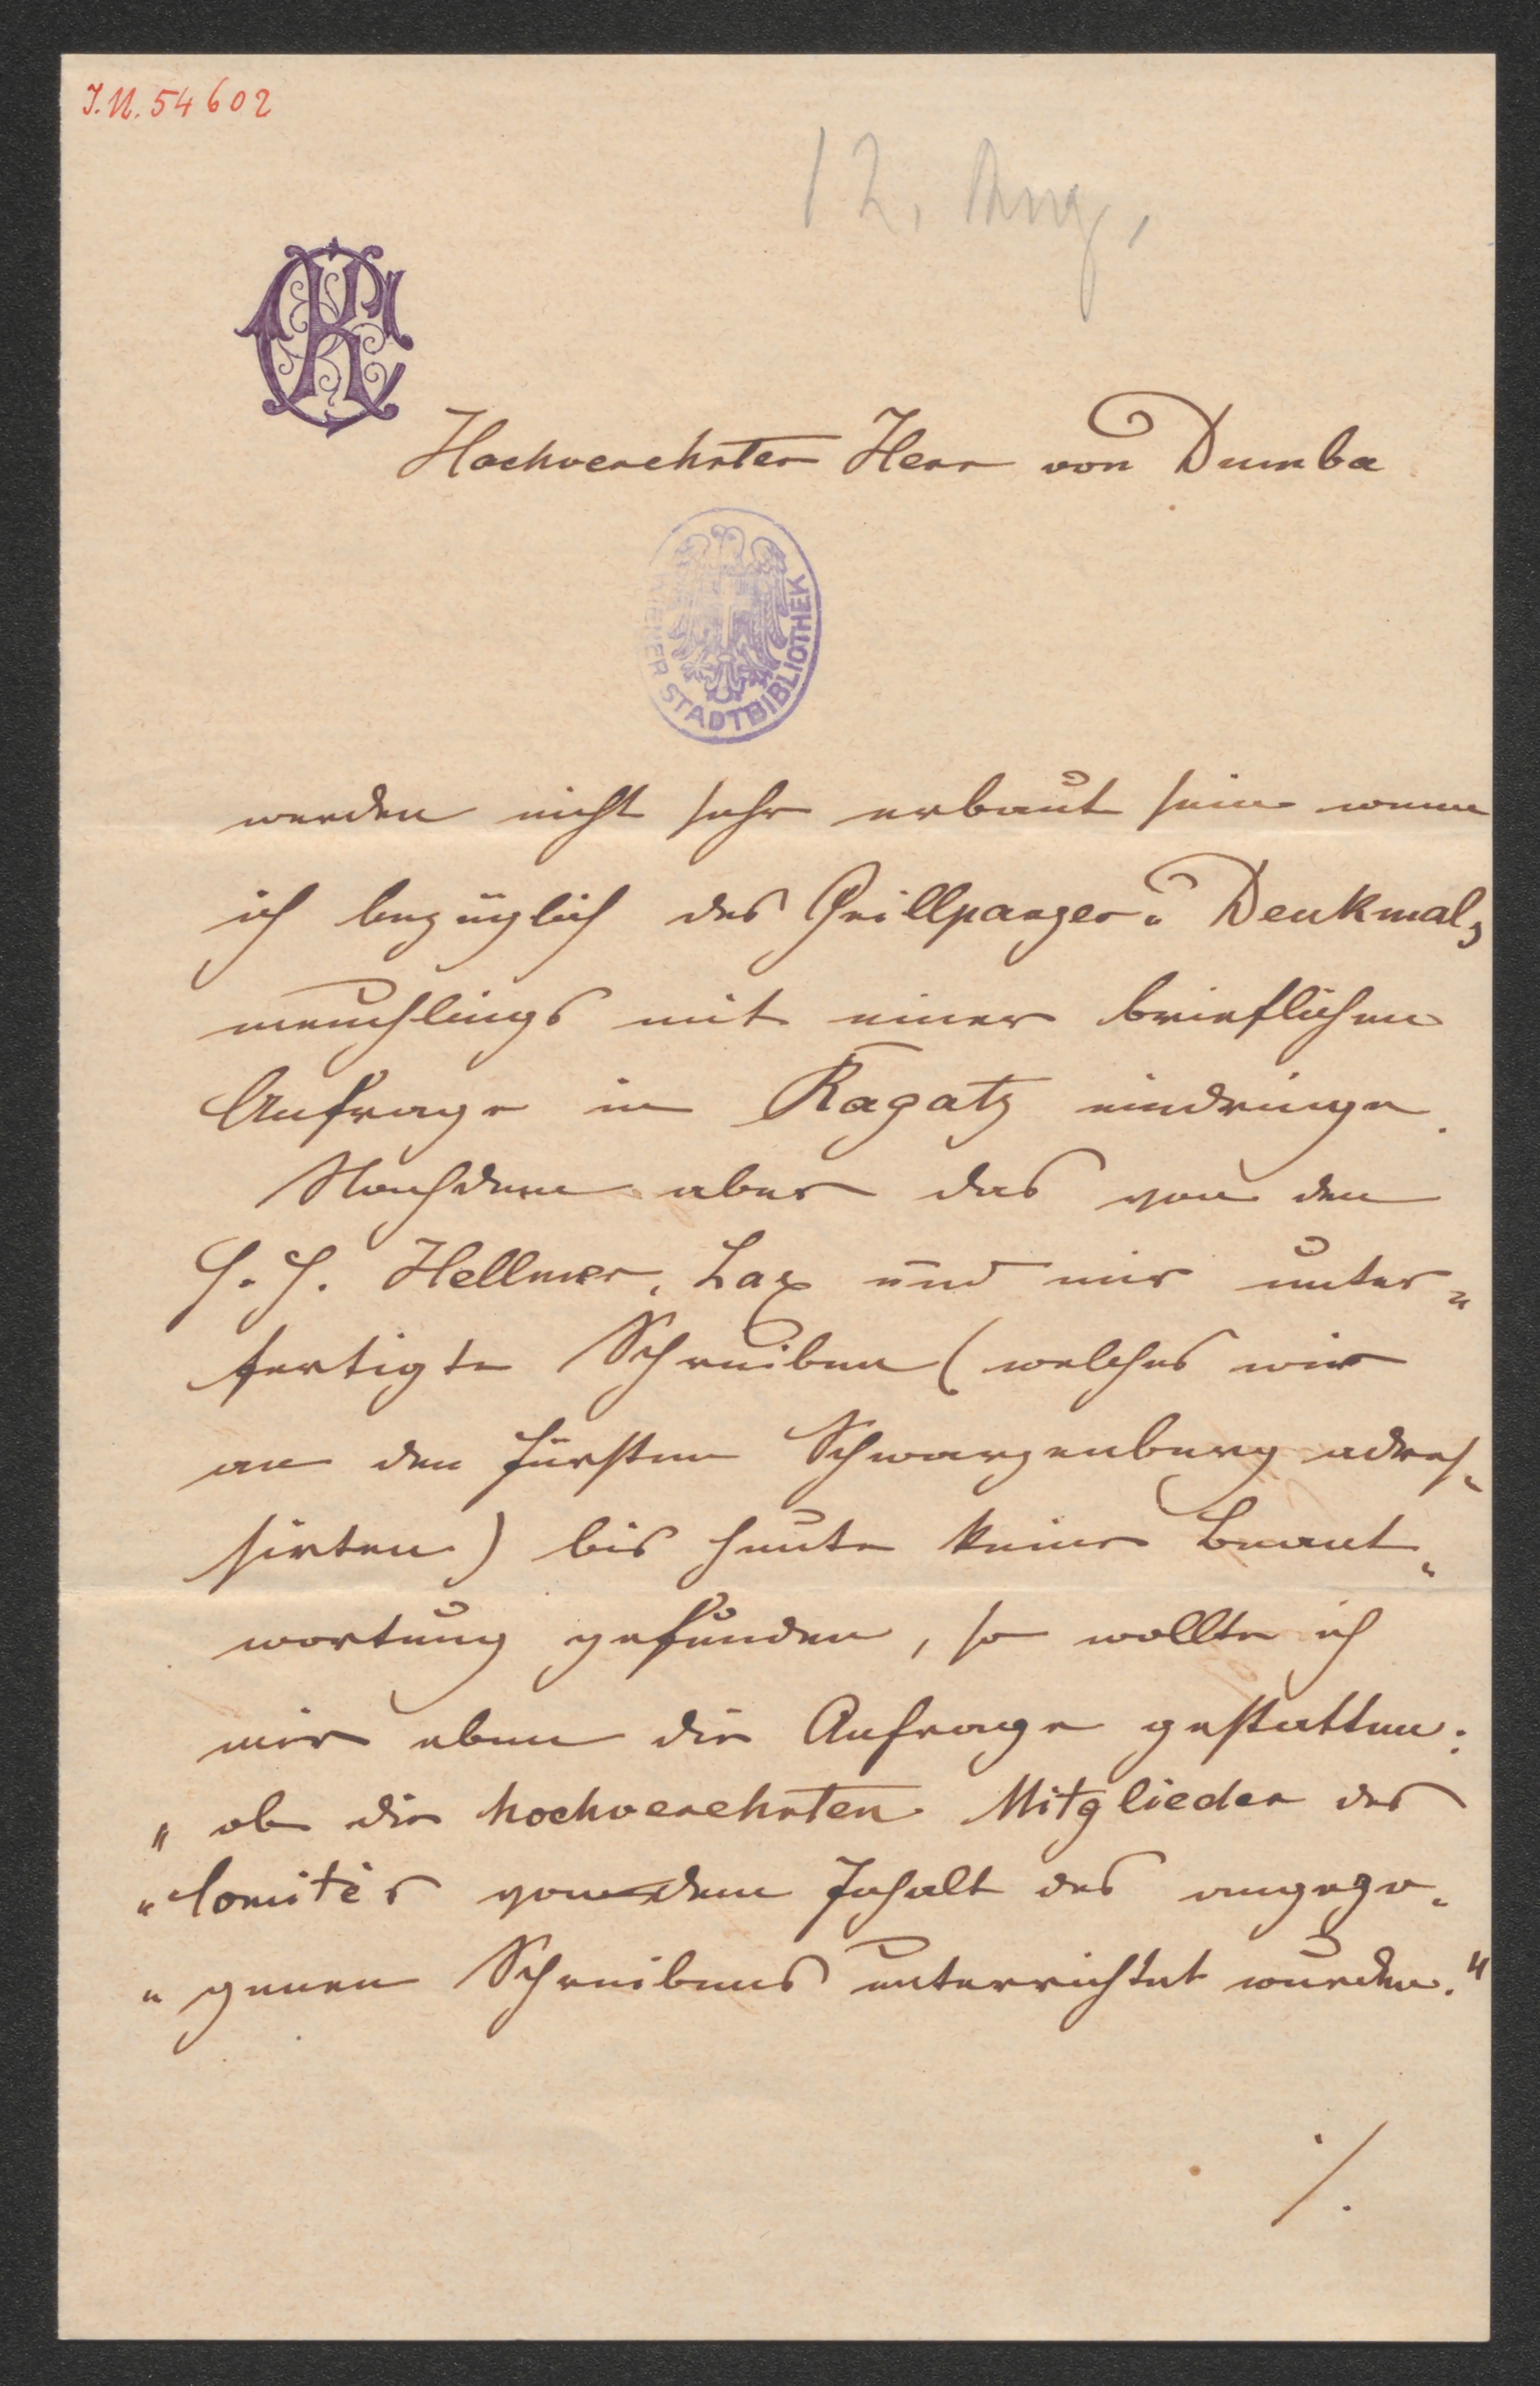 J.N. 54602
12. Aug.
CK
Hochverehrter Herr von Dumba
WIENER STADTBIBLIOTHEK
werden nicht sehr erbaut sein wenn
ich bezüglich des Grillparzer-Denkmals
meuchlings mit einer brieflichen
Anfrage in Ragatz eindringe.
Nachdem aber das von den
H. H. Hellmer, Lax und mir unter-
fertigte Schreiben (welches wir
an den Fürsten Schwarzenberg adres-
sirten) bis heute keine Beant-
wortung gefunden, so wollte ich
mir eben die Anfrage gestatten:
"ob die hochverehrten Mitglieder des
"Comités von dem Inhalt des angezo-
"genen Schreibens unterrichtet wurden."
./.